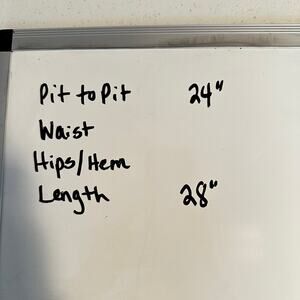 Pit to Pit 24"
Waist
Hips/Hem
Length 28"